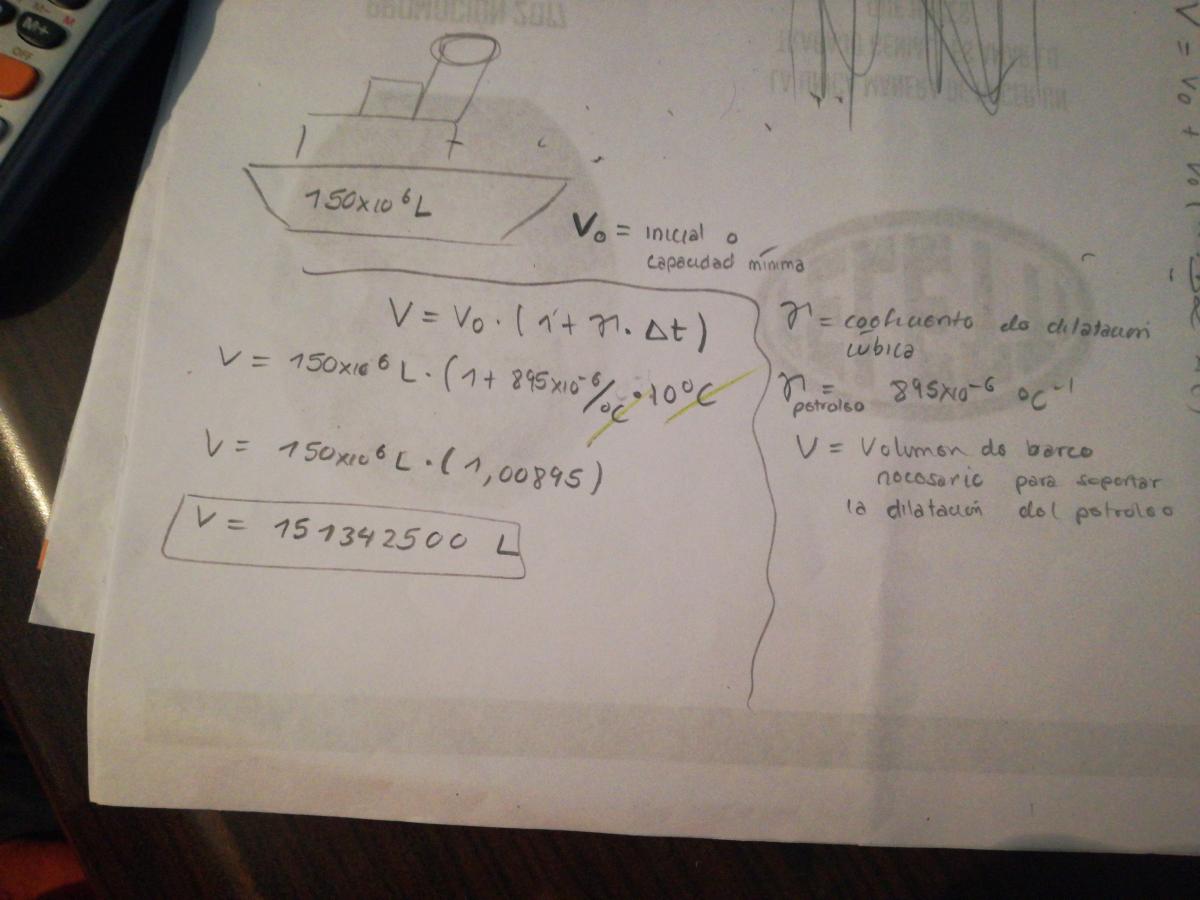 M-
M
M+
OFF
PROMOCIÓN 2017
150x10⁶L
V₀ = inicial o
capacidad mínima
V = V₀ · (1 + γ · Δt)
V = 150x10⁶ L · (1 + 895x10⁻⁶/°C · 10°C
V = 150x10⁶ L · (1,00895)
V = 151342500 L
γ = coeficiente de dilatación
cúbica
γ petroleo = 895x10⁻⁶ °C⁻¹
V = Volumen de barco
necesario para soportar
la dilatación del petroleo
V = V₀ + V₀